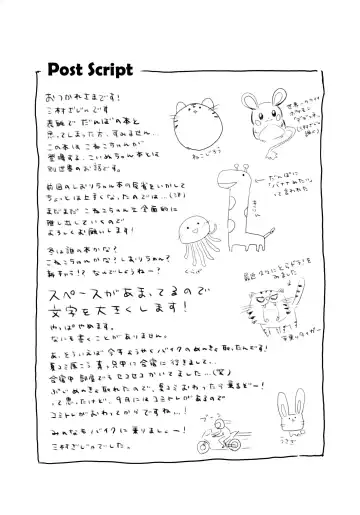 Post Script
おつかれさまです!
三村ざじゃのです
表紙で だんぱの本と
思ってしまった方、すみません…
この本は こねこちゃんが
登場する、こいぬちゃん本とは
別世界のお話です。
前回のしおりちゃん本の反省をいかして
ちょいとは上手くなったのでは…(汗)
まだまだ こねこちゃんを全面的に
推し出していくので
よろしくお願いします!
冬は誰の本かな?
こねこちゃんかな?しおりちゃん?
新キャラ!? なんでしょうねー?
スペースがあまってるので
文字を大きくします!
やっぱやめます。
なにも書くことがありません。
あ、そういえば今年ようやくバイクのめんきょ取れたんです!
夏コミ原こう真っ只中に合宿に行きまして…
合宿中部屋でもセコセコかいてました…(笑)
ぶじめんきょ取れたので、夏コミおわったら乗るどー!
って思ったけど、9月にはコミトレがあるので
コミトレがおわってからですね…!
みんなもバイクに乗りましょー!
三村ざじゃのでした。
ねこじろう
くらげ
だんぱに
「バナナみたい」って
言われた
最近タケにとこどう!を
みました
手乗りタイガー
うさぎ
ブーン